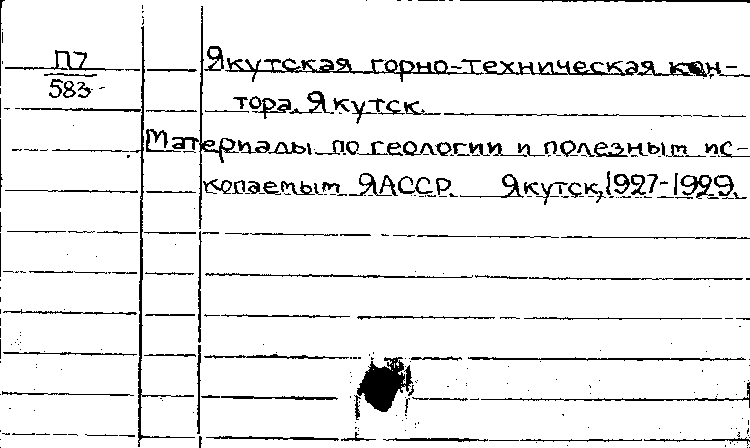 П7
583
Якутская горно-техническая кон-
тора. Якутск.
Материалы по геологии и полезным ис-
копаемым ЯАССР. Якутск, 1927-1929.